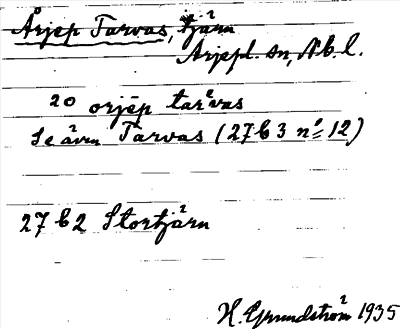 Årjep Tarvas, tjärn
Arjepl. sn, Nb. l.
20 orjēp tarvas
Se även Tarvas (27 C 3 nº 12)
27 C 2 Stortjärn
H. Grundström 1935